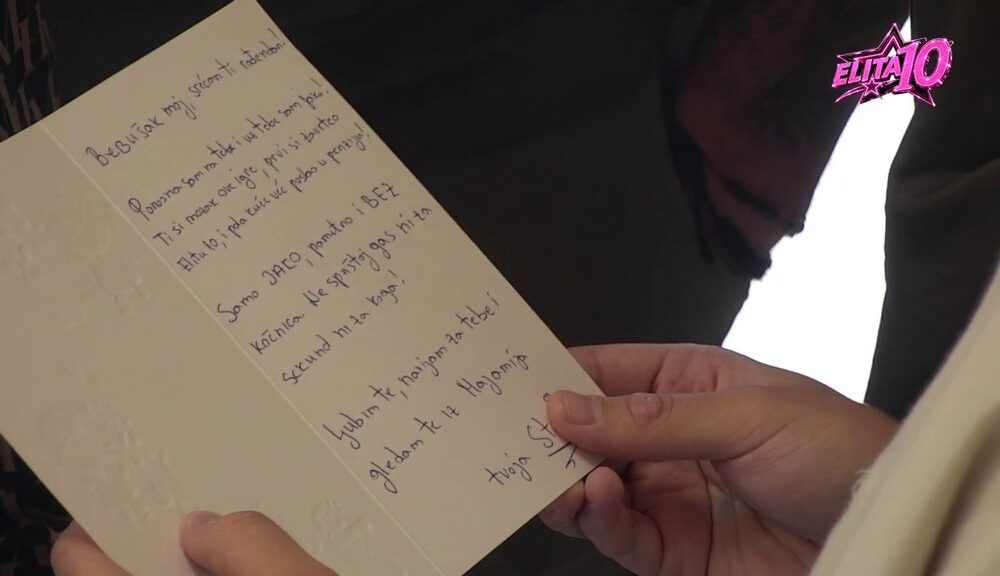 ELITA 10
BEBUŠAK MOJ, srećan ti rođendan!
Ponosna sam na tebe i uz tebe sam jako!
Ti si mozak ove igre, prvi si zavrteo
Elitu 10, i pola kuće već poslao u penziju!
Samo JAKO, pametno i BEZ
kočnica. Ne spuštaj gas ni za
sekund ni za koga!
ljubim te, navijam za tebe i
gledam te iz Majamija
tvoja